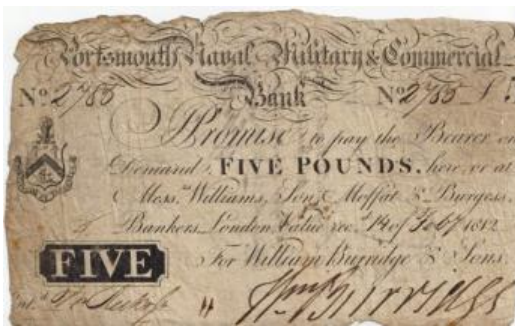 Portsmouth Naval Military & Commercial
Bank
No 2785 No 2785
I Promise to pay the Bearer on
Demand FIVE POUNDS, here, or at
Messrs Williams, Son, Moffat & Burgess,
Bankers London, Value recd 14 of Feby 1812
For William Burridge & Sons.
FIVE
Entd
Wm Burridge